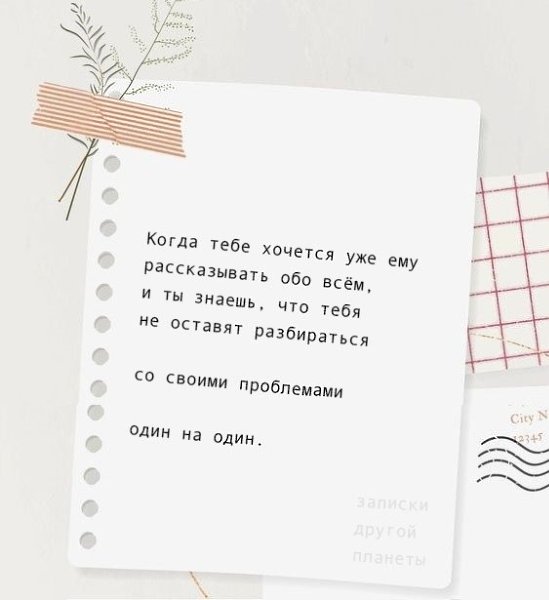 Когда тебе хочется уже ему
рассказывать обо всём,
и ты знаешь, что тебя
не оставят разбираться
со своими проблемами
один на один.
записки
другой
планеты
City N
12345